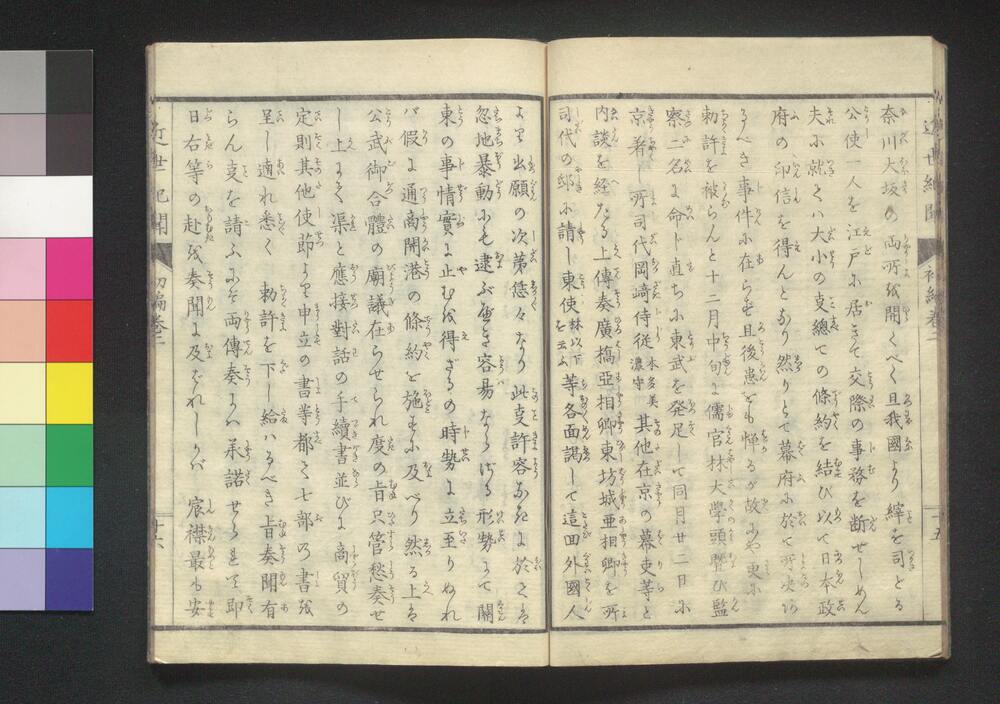 近世紀聞 初編卷二 十五
奈川大坂の両所を開くべく且我國より繹を司どる
公使一人を江戸に居きて交際の事務を断ぜしめん
夫に就ては大小の支總ての條約を結び以て日本政
府の印信を得んとなり然りとて幕府に於て所決
るべき事件に在らず且後患をも憚るが故にや更に
勅許を被らんと十二月中旬に儒官林大學頭曁び監
察二名に命ト直ちに東武を発足して同月廿二日に
京着し所司代岡﨑侍従 本多美濃守 其他在京の幕吏等と
内談を経たる上傳奏廣橋亜相卿東坊城亜相卿を所
司代の邸に請し東使 林以下を云ふ 等各面謁して這回外國人
より出願の次第悠々なり此支許容なきに於ては
忽地暴動にも逮ぶべき容易ならざる形勢にて關
東の事情實に止むを得ざるの時勢に立至りぬれ
バ假に通商開港の條約を施すに及べり然る上は
公武御合體の廟議在らせられ度の旨只管愁奏せ
し上にて渠と應接對話の手續書並びに商貿の
定則其他使節より申立の書等都て七部の書を
呈し適れ悉く 勅許を下し給はるべき旨奏聞有
らん支を請ふにぞ両傳奏には承諾せられて即
日右等の赴を奏聞に及ばれしかバ 宸襟最も安
近世紀聞 初編卷二 十六